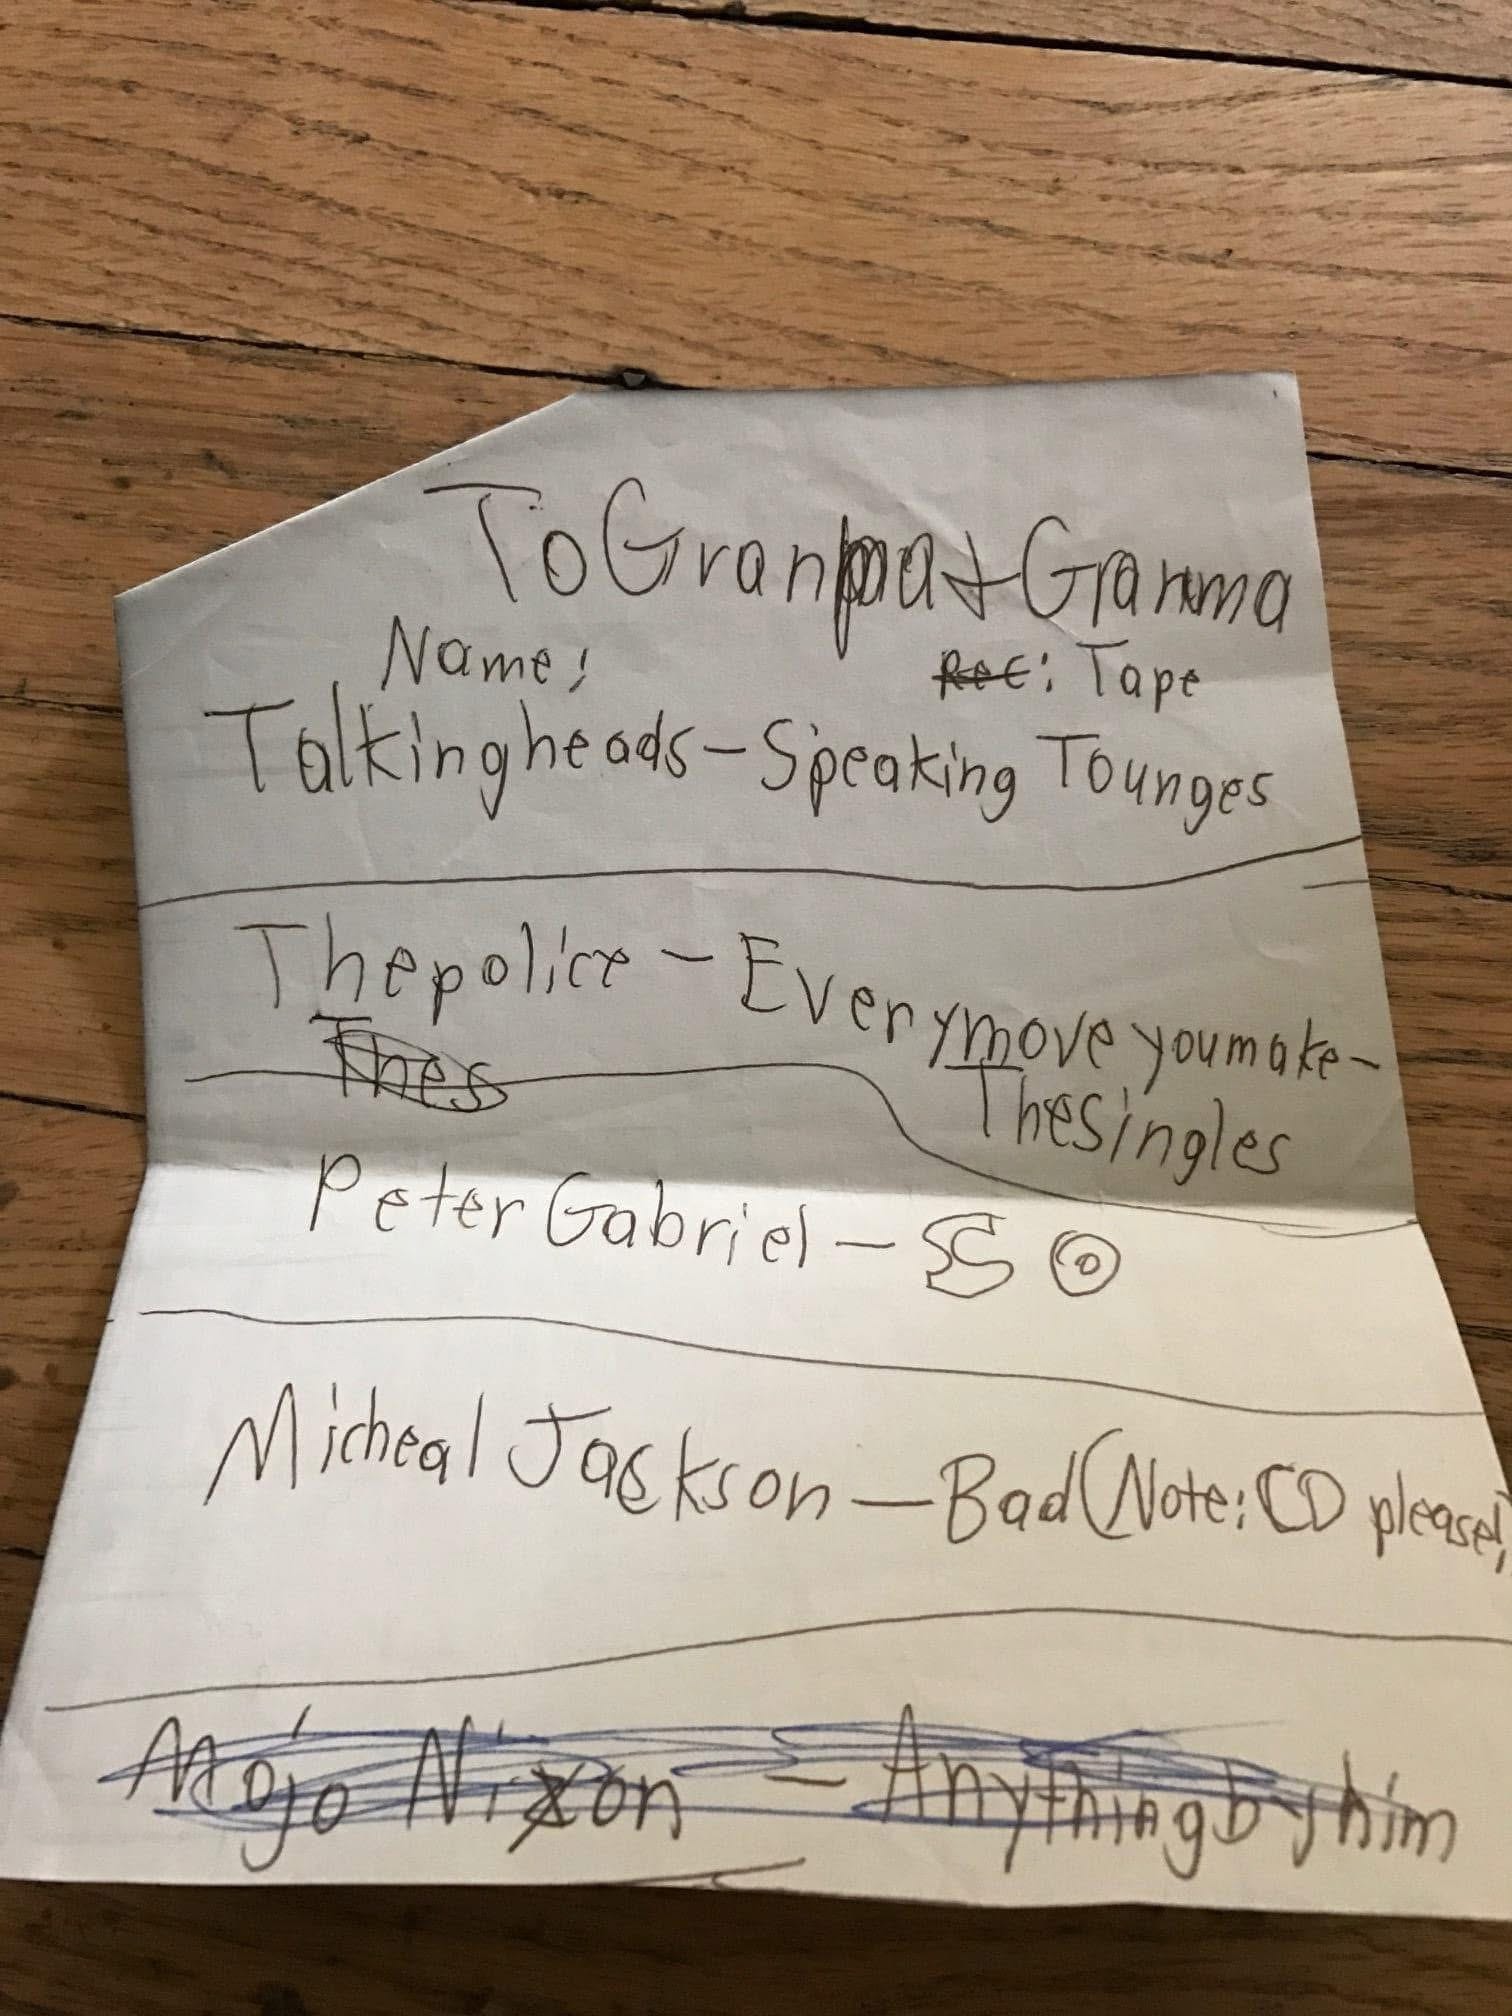 To Granpa + Granma
Name: Rec: Tape
Talkingheads - Speaking Tounges
Thepolice - Everymove youmake -
Thes
Thesingles
Peter Gabriel - SO
Micheal Jackson - Bad (Note: CD please!)
Mojo Nixon - Anythingbyhim